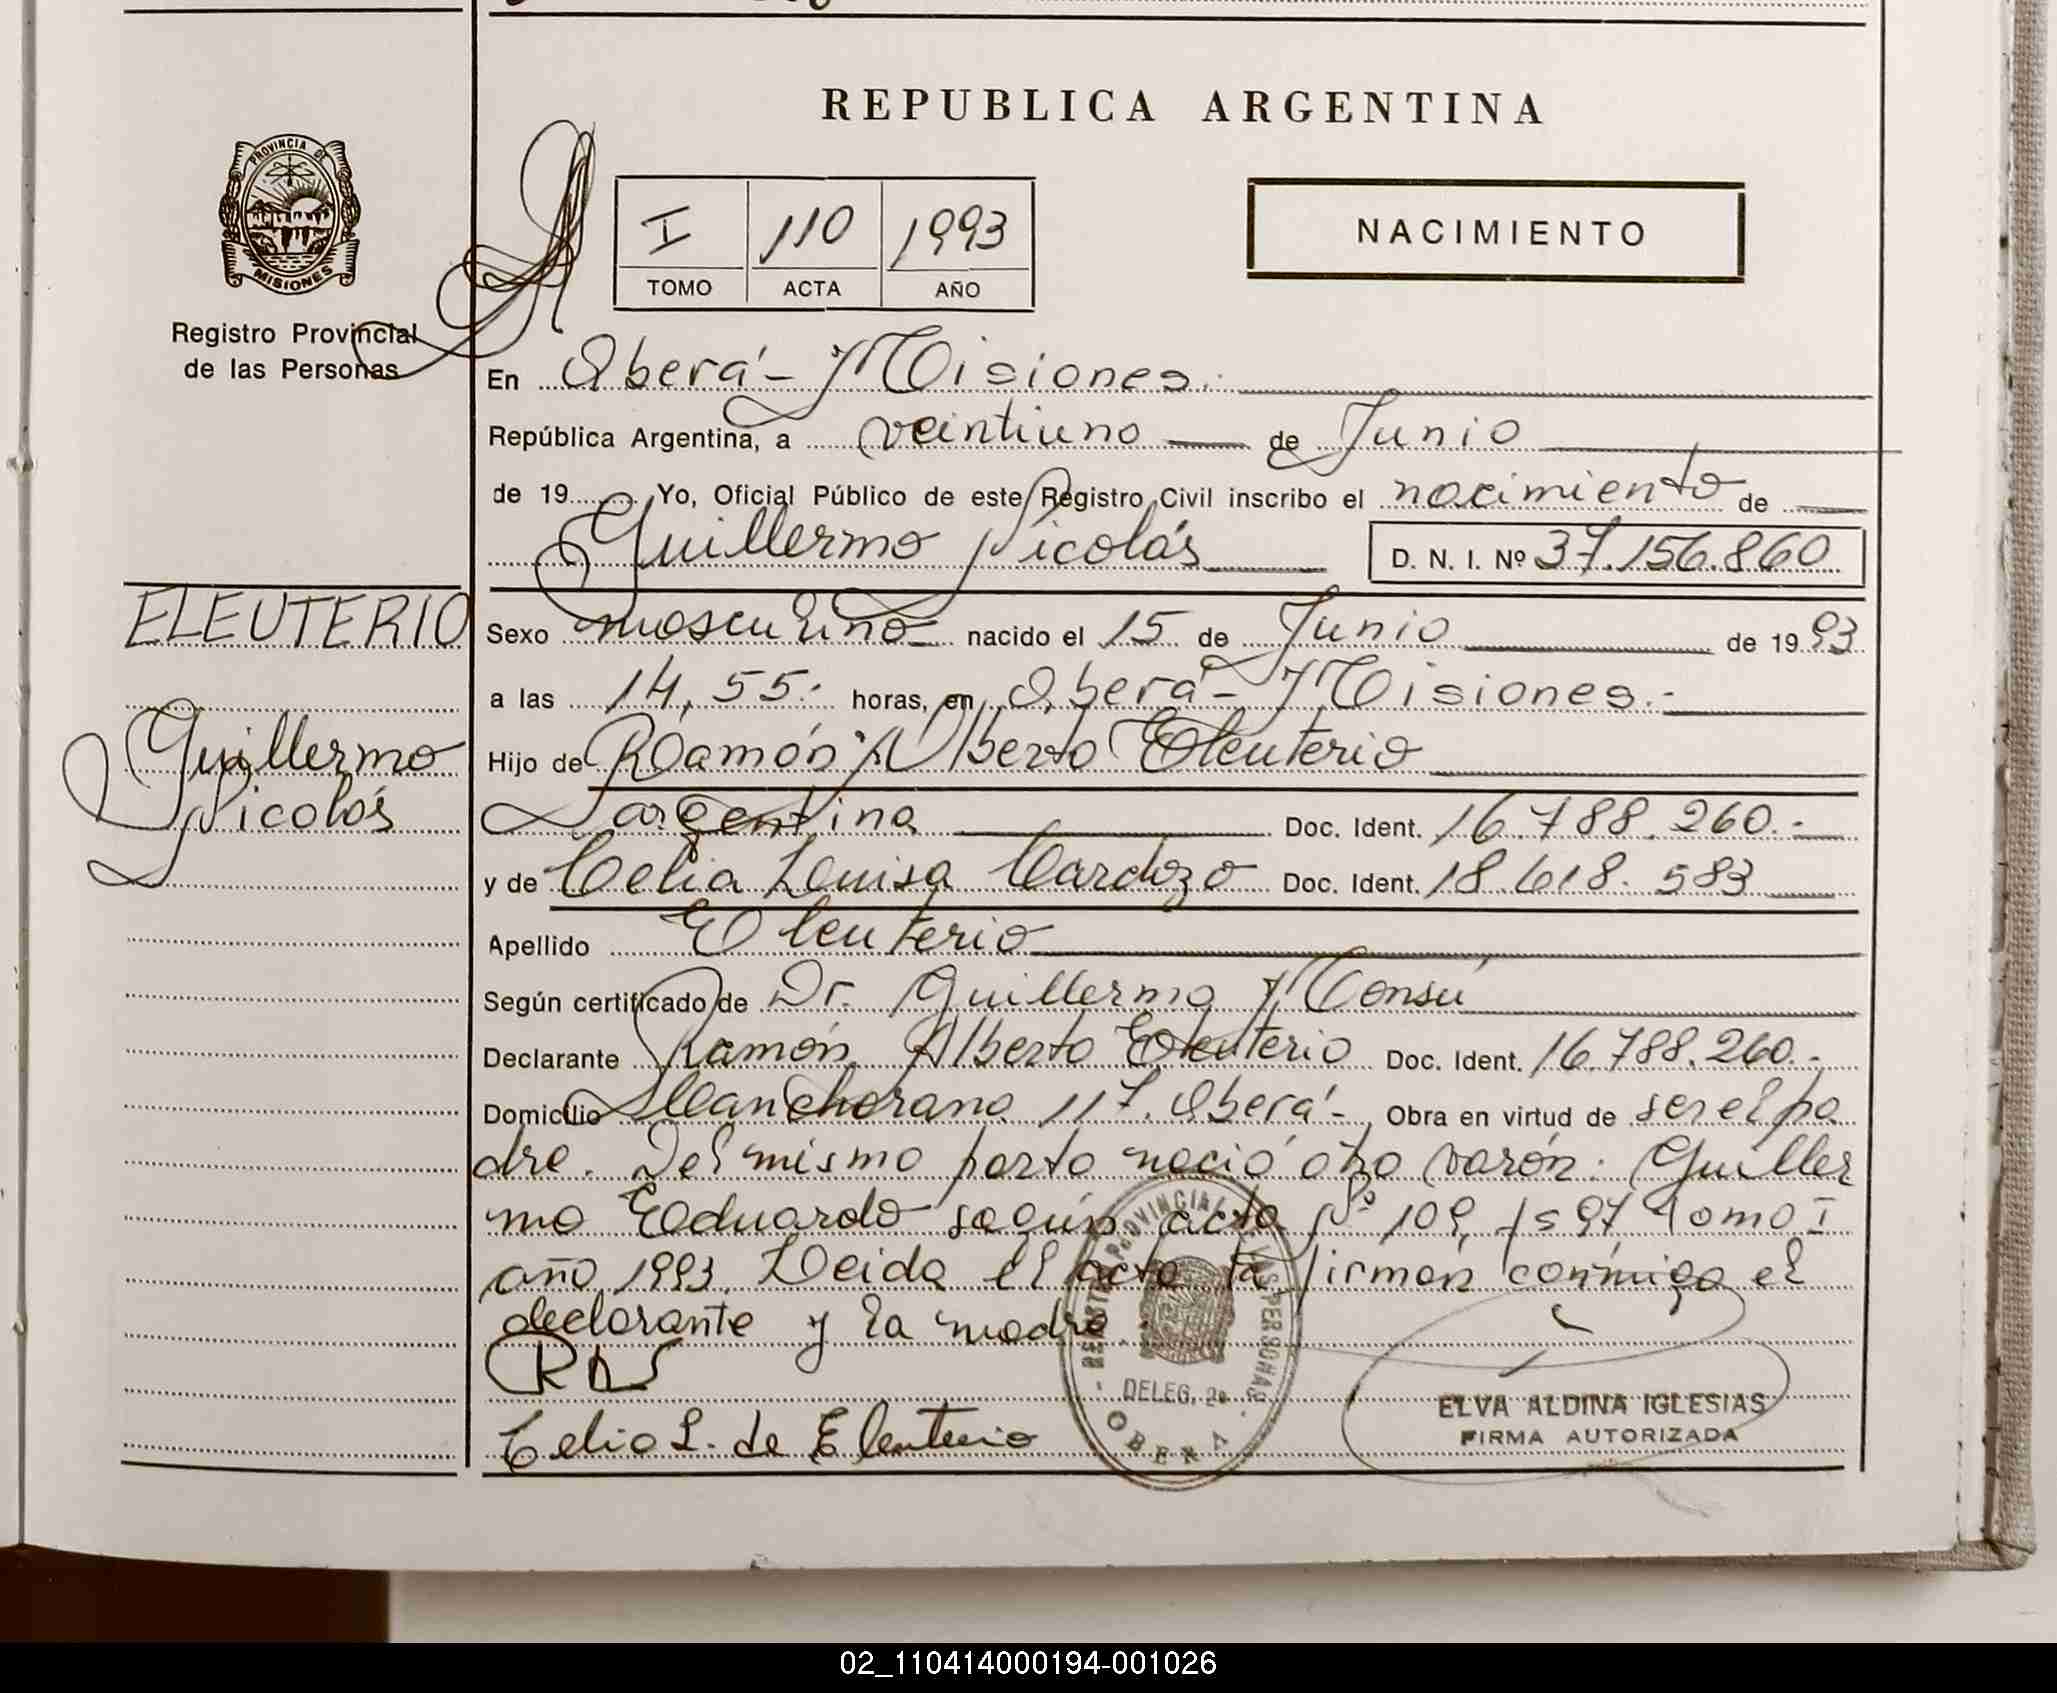 REPUBLICA ARGENTINA
PROVINCIA DE
MISIONES
Registro Provincial
de las Personas
I 110 1993
TOMO ACTA AÑO
NACIMIENTO
En Oberá - Misiones.
República Argentina, a veintiuno de Junio
de 19 Yo, Oficial Público de este Registro Civil inscribo el nacimiento de
Guillermo Nicolás D. N. I. Nº 37.156.860
ELEUTERIO
Guillermo
Nicolás
Sexo masculino nacido el 15 de Junio de 1993
a las 14,55.- horas, en Oberá - Misiones.-
Hijo de Ramón Alberto Eleuterio
argentina Doc. Ident. 16.788.260.-
y de Celia Luisa Cardozo Doc. Ident. 18.618.583
Apellido Eleuterio
Según certificado de Dr. Guillermo
Declarante Ramón Alberto Eleuterio Doc. Ident. 16.788.260.-
Domicilio 117. Oberá - Obra en virtud de ser el pa
dre. Del mismo parto nació otro varón: Guiller
mo Eduardo según acta Nº 109, fs 97 Tomo I
año 1993. Leida el acta la firman conmigo el
declarante y la madre.
Celia L. de Eleuterio
REGISTRO PROVINCIAL DE LAS PERSONAS
DELEG. 2a
OBERA
ELVA ALDINA IGLESIAS
FIRMA AUTORIZADA
02_110414000194-001026